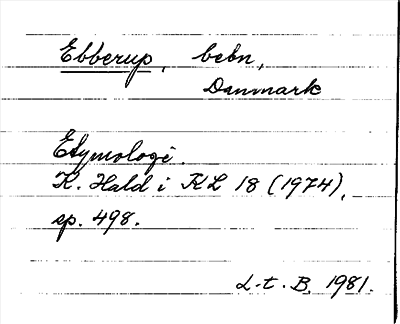 Ebberup, bebn,
Danmark
Etymologi.
K. Hald i KL 18 (1974),
sp. 498.
L-t. B. 1981.